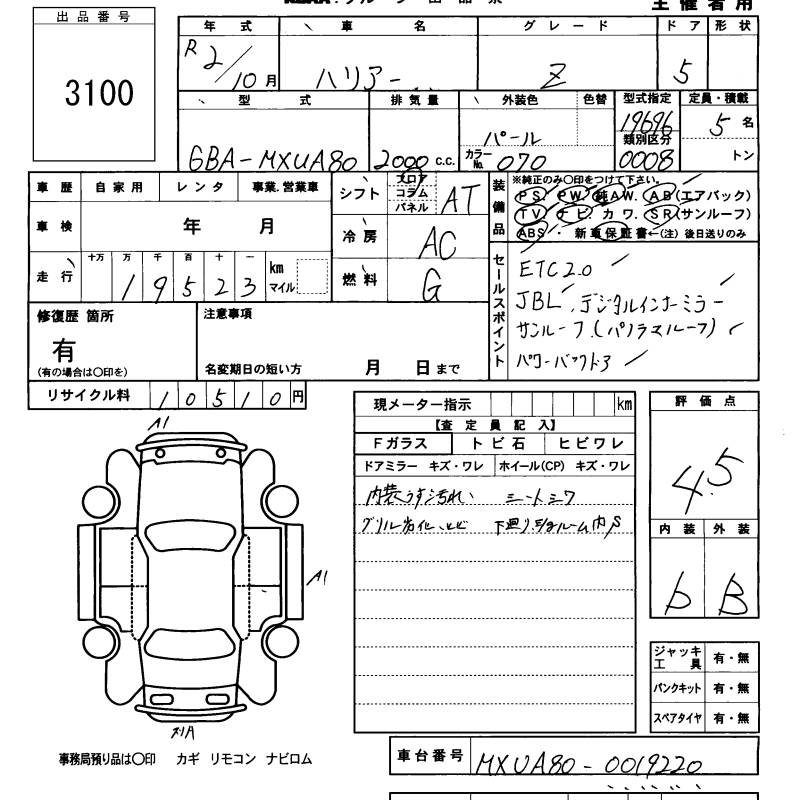 主催者用
出品番号
3100
年式 車名 グレード ドア 形状
R2/10月 ハリアー Z 5
型式 排気量 外装色 色替 型式指定 定員・積載
6BA-MXUA80 2000 c.c. パール 19696 5名
カラーNo. 070 類別区分 0008 トン
車歴 自家用 レンタ 事業.営業車
車検 年 月
走行 十万 万 千 百 十 一 km マイル
19523
シフト フロア コラム パネル AT
冷房 AC
燃料 G
装備品
※純正のみ〇印をつけて下さい。
PS. PW. 純AW. AB(エアバック)
TV. ナビ. カワ. SR(サンルーフ)
ABS・ 新車保証書←(注)後日送りのみ
セールスポイント
ETC2.0
JBL, デジタルインナーミラー
サンルーフ(パノラマルーフ)
パワーバックドア
修復歴 箇所
有
(有の場合は〇印を)
注意事項
名変期日の短い方 月 日まで
リサイクル料 10510円
A1
A1
事務局預り品は〇印 カギ リモコン ナビロム
現メーター指示 km
【査定員記入】
Fガラス トビ石 ヒビワレ
ドアミラー キズ・ワレ ホイール(CP) キズ・ワレ
内装うす汚れ、 シートシワ
グリル劣化、とび 下廻り、ルーム内S
評価点
4.5
内装 外装
b B
ジャッキ工具 有・無
パンクキット 有・無
スペアタイヤ 有・無
車台番号 MXUA80-0019220